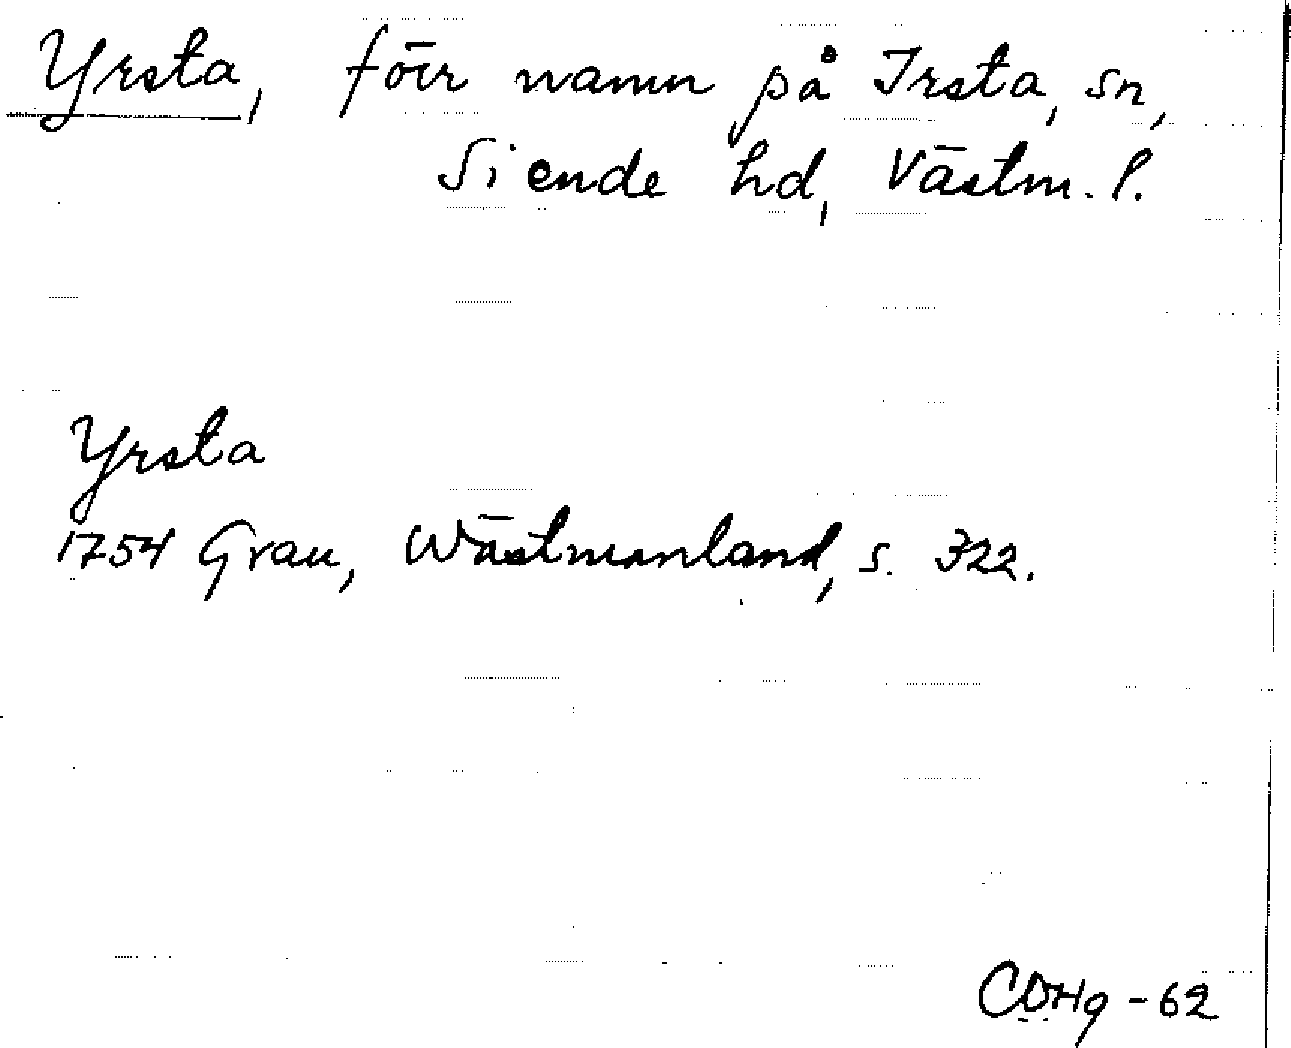 Yrsta, förr namn på Irsta, sn,
Siende hd, Västm. l.
Yrsta
1754 Grau, Wästmanland, s. 322.
CDHg - 62